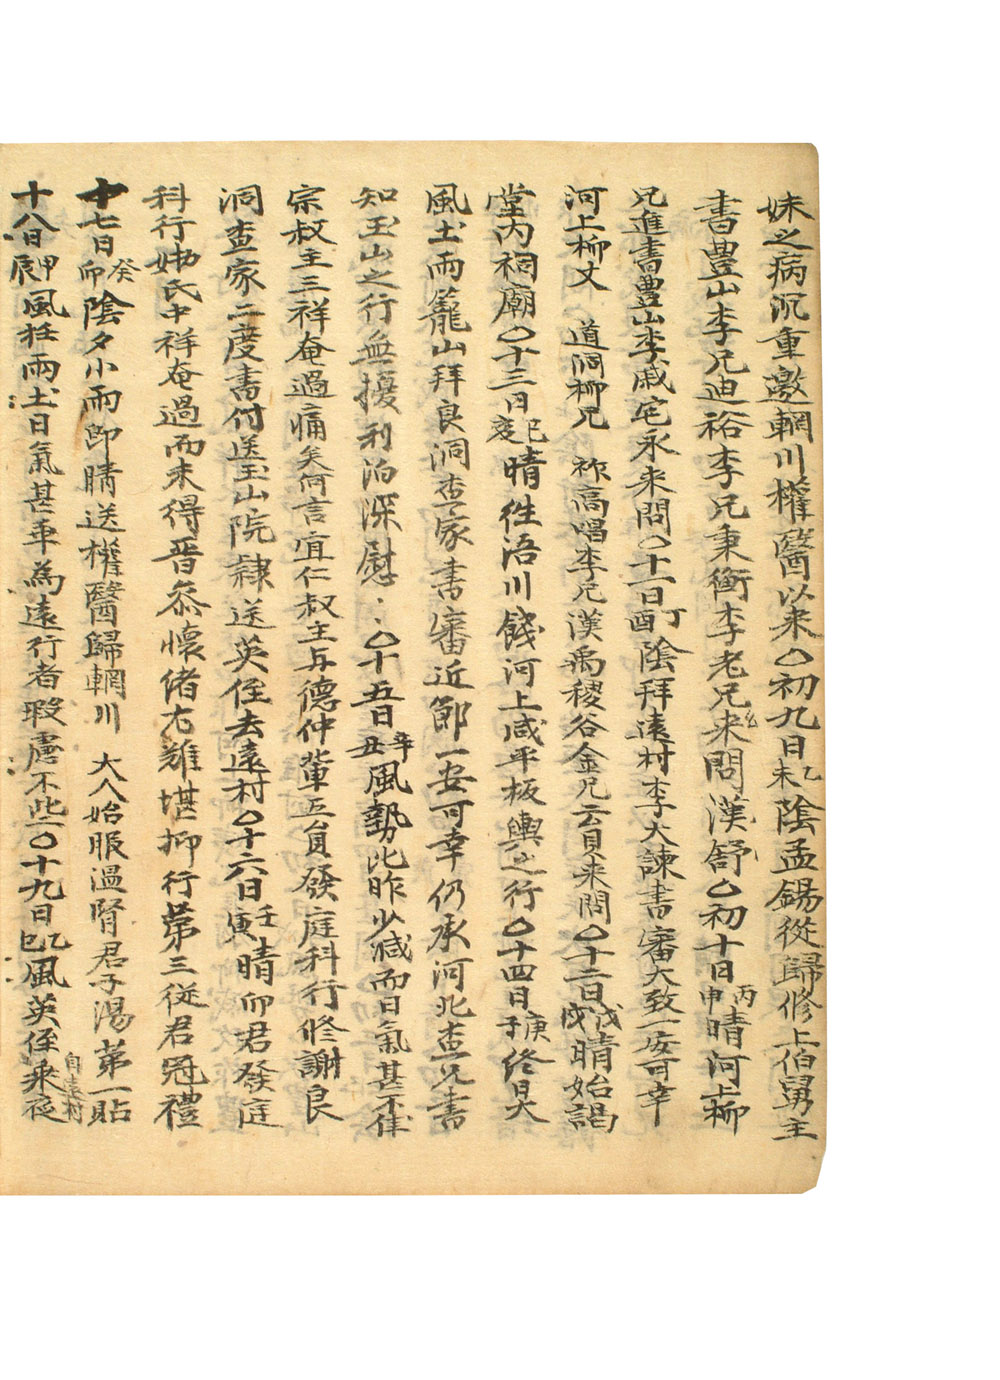 妹之病沉重邀輞川權醫以来○初九日乙未陰孟錫從歸修上伯舅主
書豊山李兄迪裕李兄秉衡李老兄来問漢舒○初十日丙申晴河上柳
兄進書豊山李戚宅永来問○十一日丁酉陰拜遠村李大諫書審大致一安可幸
河上柳丈 道洞柳兄 祚高唱李兄漢禹稷谷金兄云貟来問○十二日戊戌晴始謁
堂内祠廟○十三日己亥晴往浯川餞河上咸平板輿之行○十四日庚子終日大
風土雨籠山拜良洞査家書審近節一安可幸仍承河北査兄書
知玉山之行無擾利泊深慰○十五日辛丑風勢比昨少减而日氣甚不佳
宗叔主三祥奄過痛矣何言宜仁叔主与德仲軰五貟發庭科行修謝良
洞査家二度書付送玉山院隷送英侄去遠村○十六日壬寅晴卯君發庭
科行姊氏中祥奄過而未得晋叅懷緖尤難堪抑行第三從君冠禮
十七日癸卯陰夕小雨即晴送權醫歸輞川 大人始服温腎君子湯第一貼
十八日甲辰風狂雨土日氣甚乖為遠行者瑕慮不些○十九日乙巳風英侄乘夜自遠村